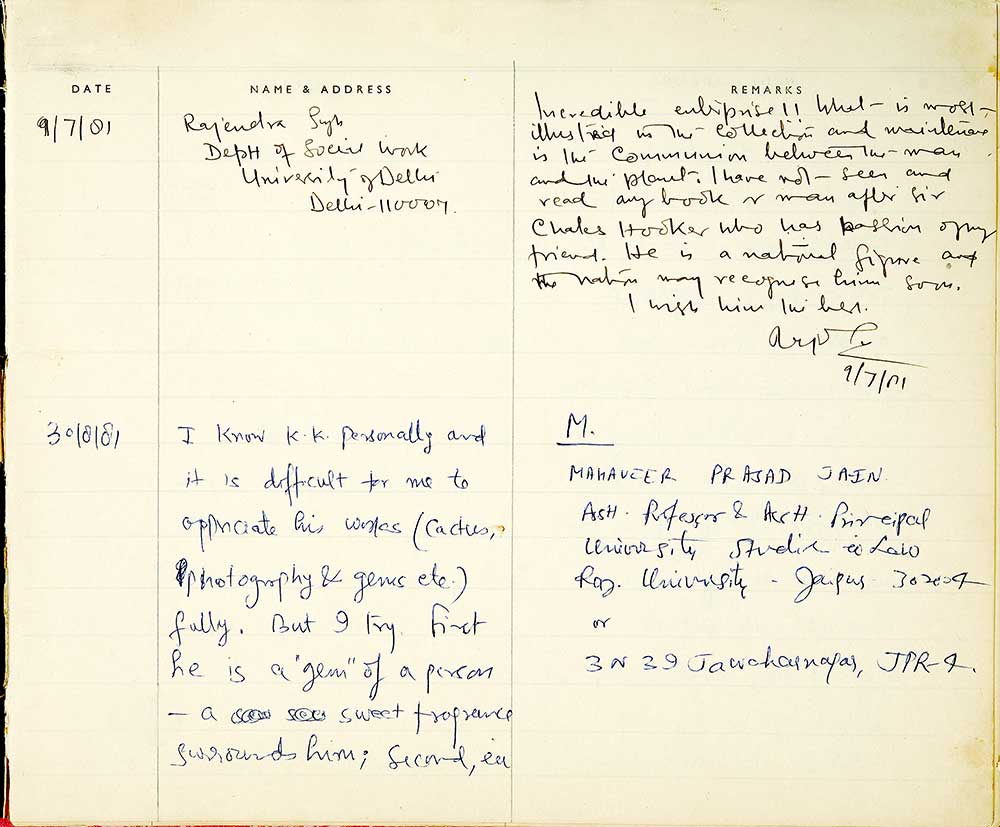 DATE
NAME & ADDRESS
REMARKS
9/7/81
Rajendra Singh
Deptt of Social Work
University of Delhi
Delhi-110007.
Incredible enterprise!! What is most
in the collection and maintenance
is the Communion between the man
and the plant. I have not seen and
read any book or man after Sir
Charles Hooker who has passion of my
friend. He is a national figure and
the nation may recognise him soon.
I wish him the best.
9/7/81
30/8/81
I know K.K. personally and
it is difficult for me to
appriciate his works (Cactus,
photography & gems etc.)
fully. But I try. First
he is a "gem" of a person
— a sweet fragrance
surrounds him; Second,
M.
MAHAVEER PRASAD JAIN
Asst. Professor & Asstt. Principal
University Studies in Law
Raj. University - Jaipur 302004
or
3 N 39 Jawaharnagar, JPR-4.